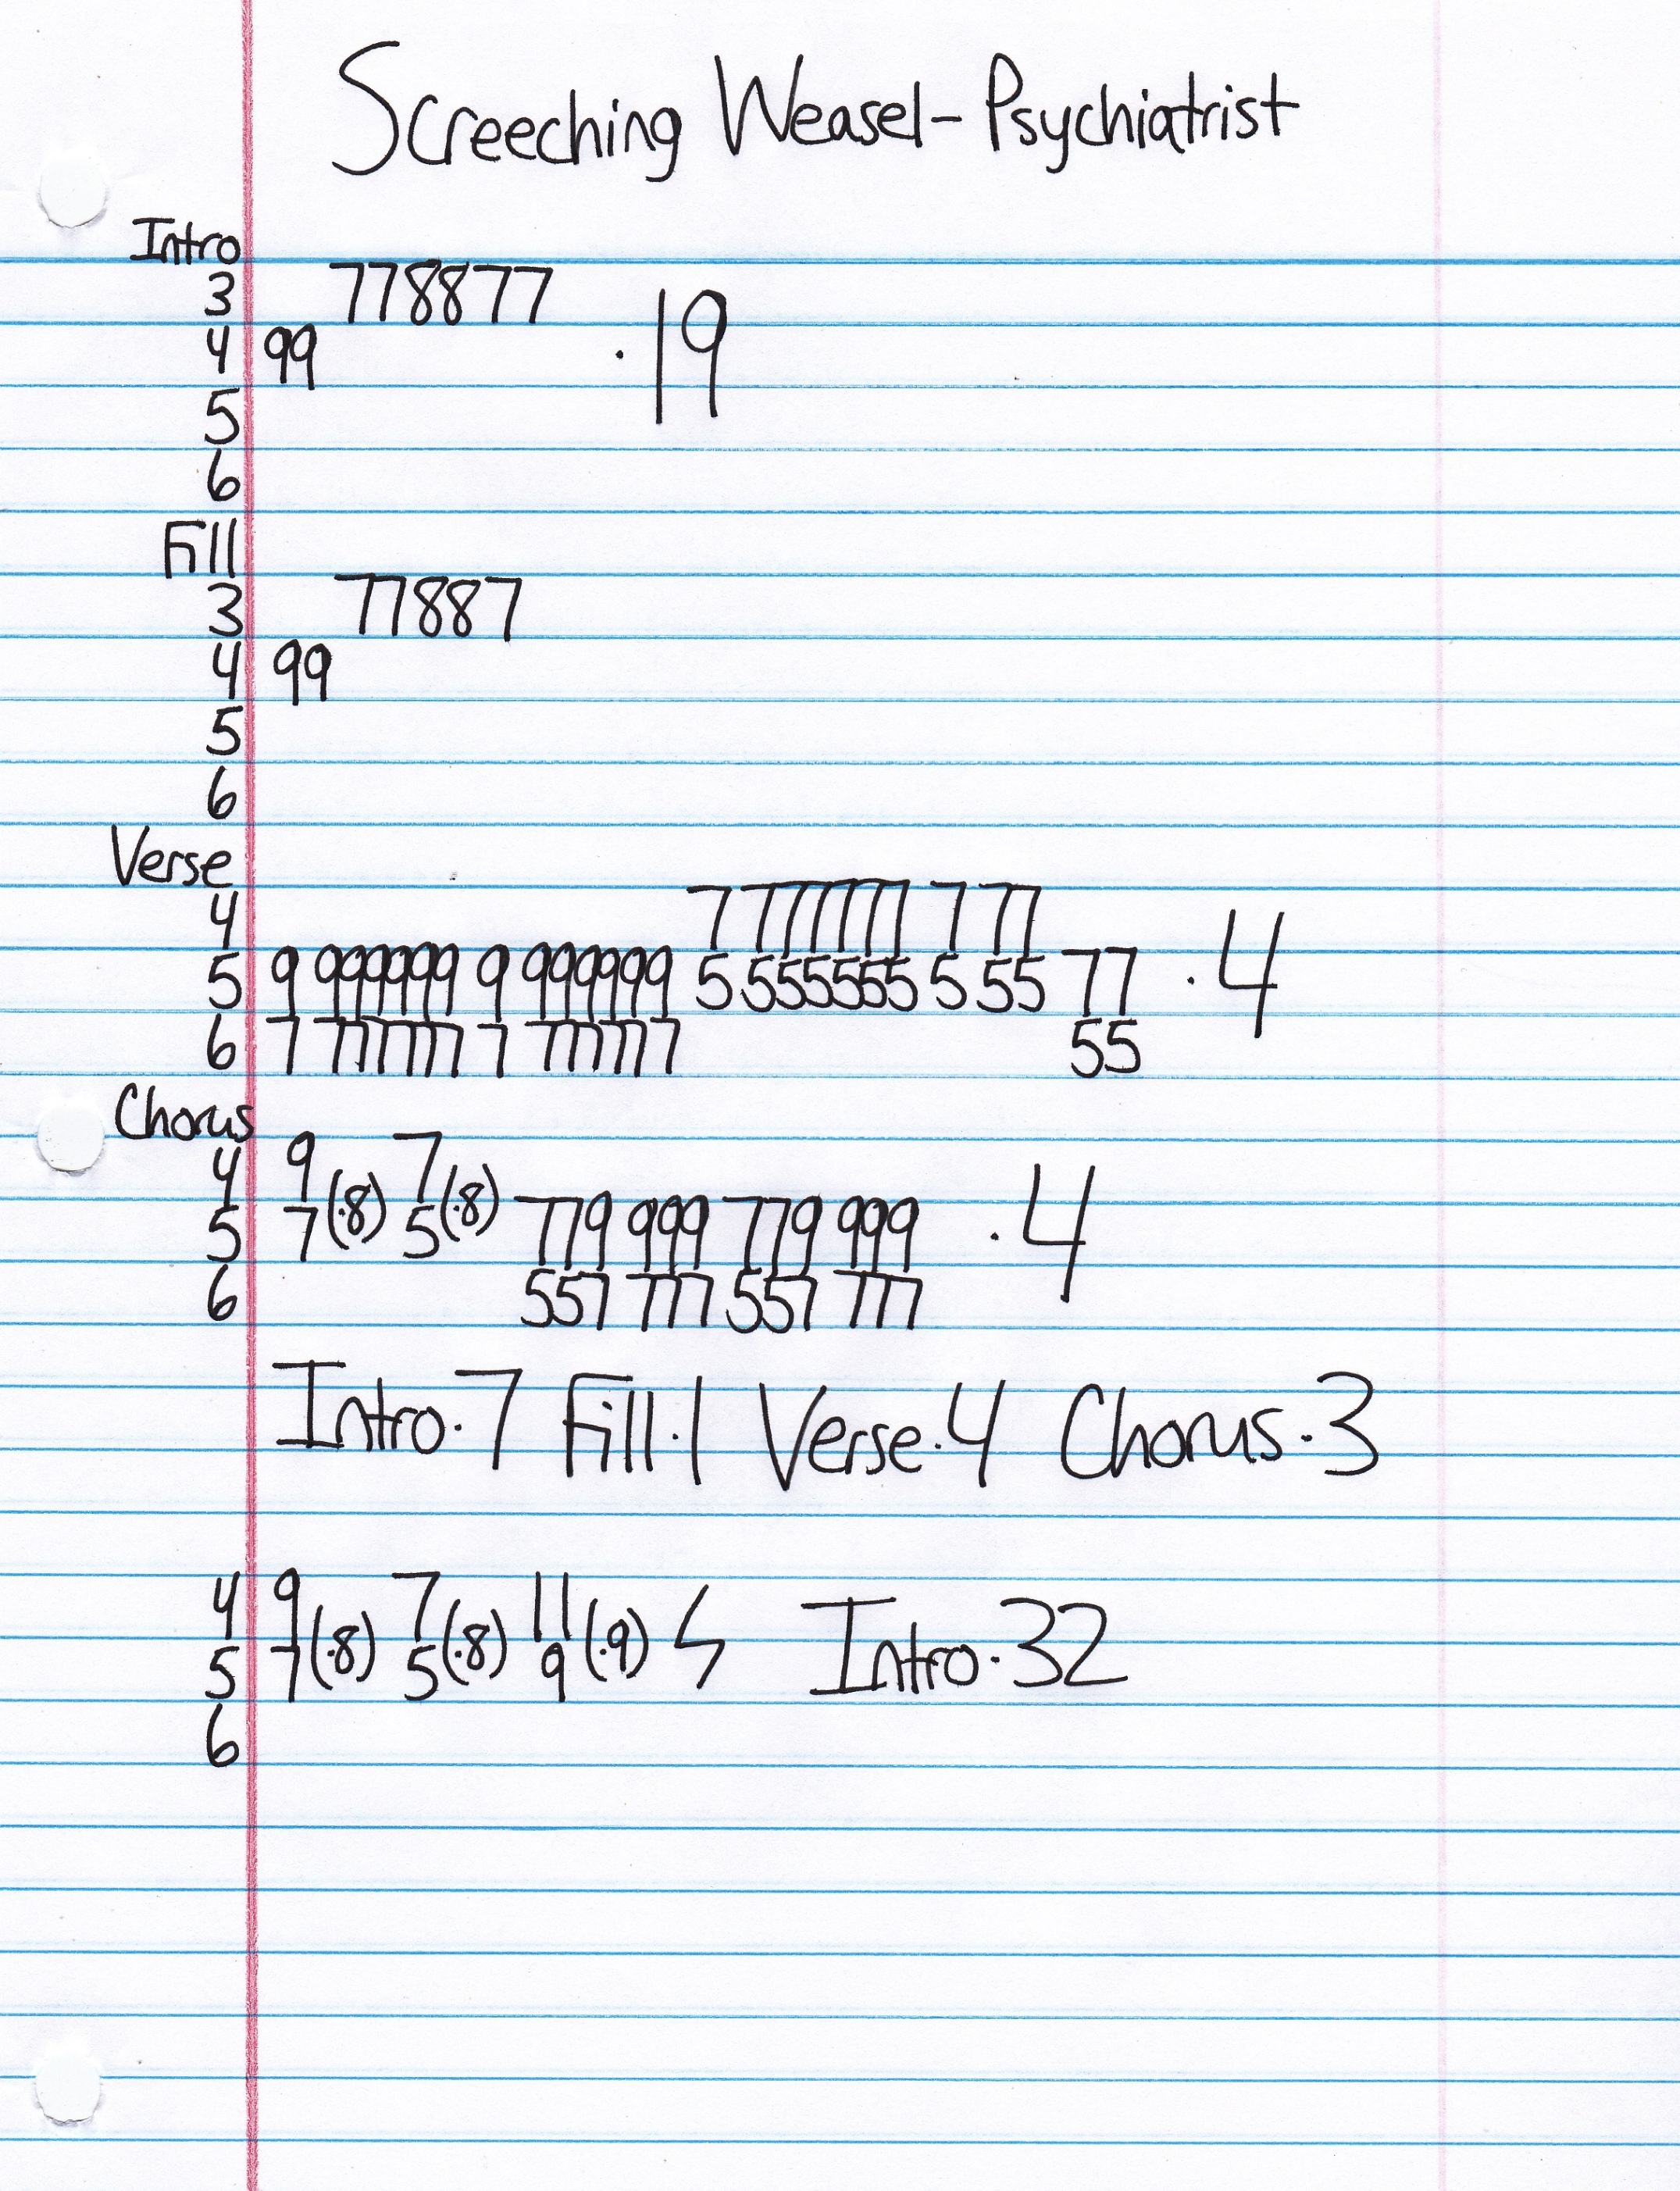 Screeching Weasel - Psychiatrist
Intro
3 778877
4 99 .19
5
6
Fill
3 77887
4 99
5
6
Verse
4 7 777777 7 77
5 9 999999 9 999999 5 555555 5 55 77 .4
6 7 777777 7 777777 55
Chorus
4 9 7
5 7(.8) 5(.8) 779 999 779 999 .4
6 557 777 557 777
Intro.7 Fill.1 Verse.4 Chorus.3
4 9 7 11
5 7(.8) 5(.8) 9(.9) Intro.32
6